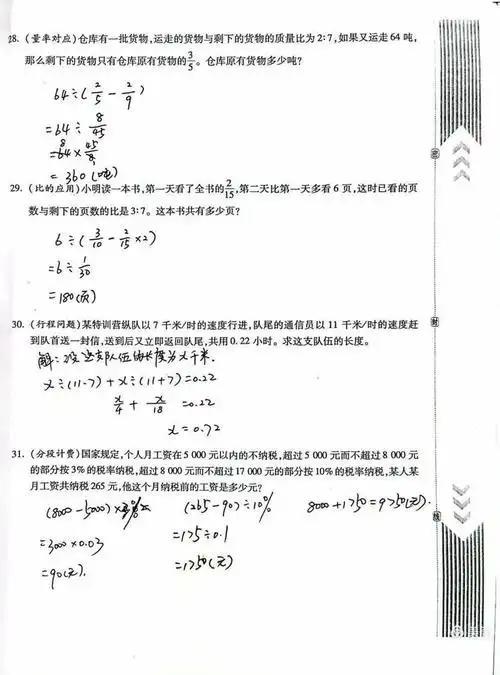 28. (量率对应)仓库有一批货物,运走的货物与剩下的货物的质量比为2:7,如果又运走64吨,
那么剩下的货物只有仓库原有货物的3/5。仓库原有货物多少吨?
64÷(2/5-2/9)
=64÷8/45
=64×45/8
=360(吨)
29. (比的应用)小明读一本书,第一天看了全书的2/15,第二天比第一天多看6页,这时已看的页
数与剩下的页数的比是3:7。这本书共有多少页?
6÷(3/10-2/15×2)
=6÷1/30
=180(页)
30. (行程问题)某特训营纵队以7千米/时的速度行进,队尾的通信员以11千米/时的速度赶
到队首送一封信,送到后又立即返回队尾,共用0.22小时。求这支队伍的长度。
解:设这支队伍的长度为x千米.
x÷(11-7)+x÷(11+7)=0.22
x/4+x/18=0.22
x=0.72
31. (分段计费)国家规定,个人月工资在5000元以内的不纳税,超过5000元而不超过8000元
的部分按3%的税率纳税,超过8000元而不超过17000元的部分按10%的税率纳税,某人某
月工资共纳税265元,他这个月纳税前的工资是多少元?
(8000-5000)×3% (265-90)÷10% 8000+1750=9750(元).
=3000×0.03 =175÷0.1
=90(元). =1750(元)
密
封
线